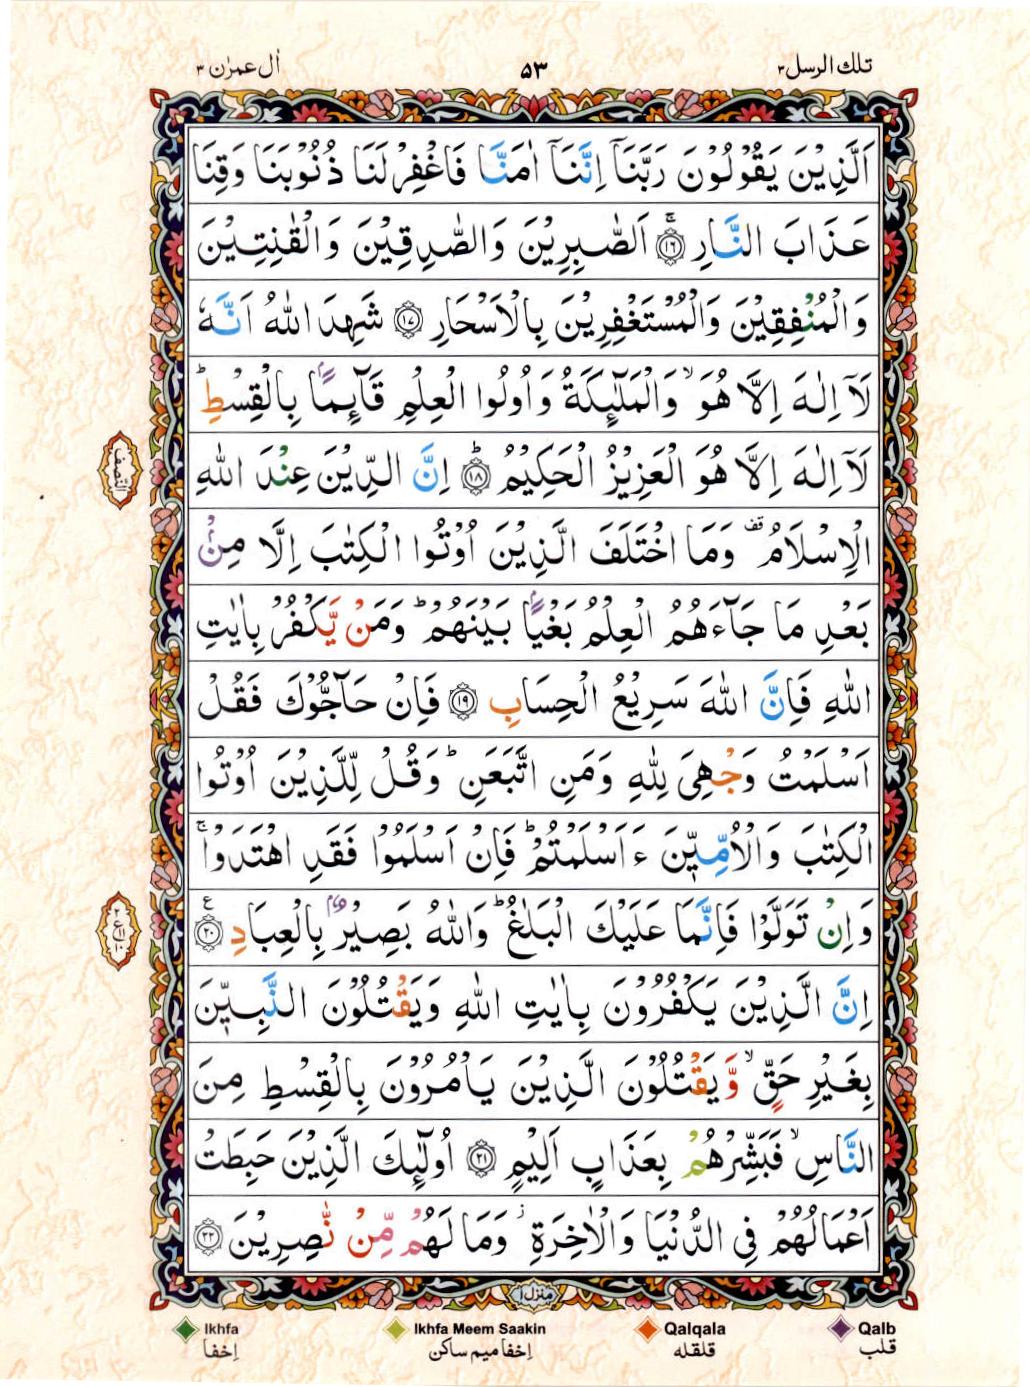 تلك الرسل ٣
٥٣
اٰل عمرٰن ٣
اَلَّذِيْنَ يَقُوْلُوْنَ رَبَّنَاۤ اِنَّنَاۤ اٰمَنَّا فَاغْفِرْ لَنَا ذُنُوْبَنَا وَقِنَا
عَذَابَ النَّارِ ۚ‏ ﴿۱۶﴾ اَلصّٰبِرِيْنَ وَالصّٰدِقِيْنَ وَالْقٰنِتِيْنَ
وَالْمُنْفِقِيْنَ وَالْمُسْتَغْفِرِيْنَ بِالْاَسْحَارِ ﴿۱۷﴾ شَهِدَ اللّٰهُ اَنَّهٗ
لَاۤ اِلٰهَ اِلَّا هُوَ ۙ وَالْمَلٰٓئِكَةُ وَاُولُوا الْعِلْمِ قَآئِمًۢا بِالْقِسْطِ ؕ
لَاۤ اِلٰهَ اِلَّا هُوَ الْعَزِيْزُ الْحَكِيْمُ ؕ ﴿۱۸﴾ اِنَّ الدِّيْنَ عِنْدَ اللّٰهِ
النّصف
الْاِسْلَامُ ۟ قف وَمَا اخْتَلَفَ الَّذِيْنَ اُوْتُوا الْكِتٰبَ اِلَّا مِنْۢ
بَعْدِ مَا جَآءَهُمُ الْعِلْمُ بَغْيًۢا بَيْنَهُمْ ؕ وَمَنْ يَّكْفُرْ بِاٰيٰتِ
اللّٰهِ فَاِنَّ اللّٰهَ سَرِيْعُ الْحِسَابِ ﴿۱۹﴾ فَاِنْ حَآجُّوْكَ فَقُلْ
اَسْلَمْتُ وَجْهِىَ لِلّٰهِ وَمَنِ اتَّبَعَنِ ؕ وَقُلْ لِّلَّذِيْنَ اُوْتُوا
الْكِتٰبَ وَالْاُمِّيّٖنَ ءَاَسْلَمْتُمْ ؕ فَاِنْ اَسْلَمُوْا فَقَدِ اهْتَدَوْا ۚ
وَاِنْ تَوَلَّوْا فَاِنَّمَا عَلَيْكَ الْبَلٰغُ ؕ وَاللّٰهُ بَصِيْرٌۢ بِالْعِبَادِ ﴿۲۰﴾ ع
اِنَّ الَّذِيْنَ يَكْفُرُوْنَ بِاٰيٰتِ اللّٰهِ وَيَقْتُلُوْنَ النَّبِيّٖنَ
بِغَيْرِ حَقٍّ ۙ وَّيَقْتُلُوْنَ الَّذِيْنَ يَاْمُرُوْنَ بِالْقِسْطِ مِنَ
النَّاسِ ۙ فَبَشِّرْهُمْ بِعَذَابٍ اَلِيْمٍ ﴿۲۱﴾ اُولٰٓئِكَ الَّذِيْنَ حَبِطَتْ
اَعْمَالُهُمْ فِى الدُّنْيَا وَالْاٰخِرَةِ ۫ وَمَا لَهُمْ مِّنْ نّٰصِرِيْنَ ﴿۲۲﴾
منزل ١
Ikhfa
Ikhfa Meem Saakin
Qalqala
Qalb
اِخفا
اِخفا میم ساکن
قلقله
قلب